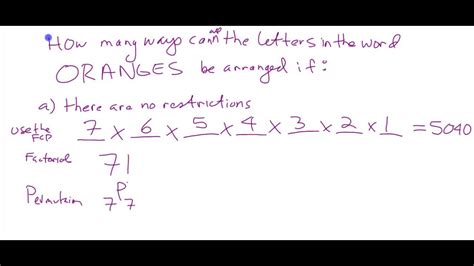 How many ways can all the letters in the word
ORANGES be arranged if:
a) there are no restrictions
use the FCP 7 x 6 x 5 x 4 x 3 x 2 x 1 = 5040
Factorial 7!
Permutation 7P7